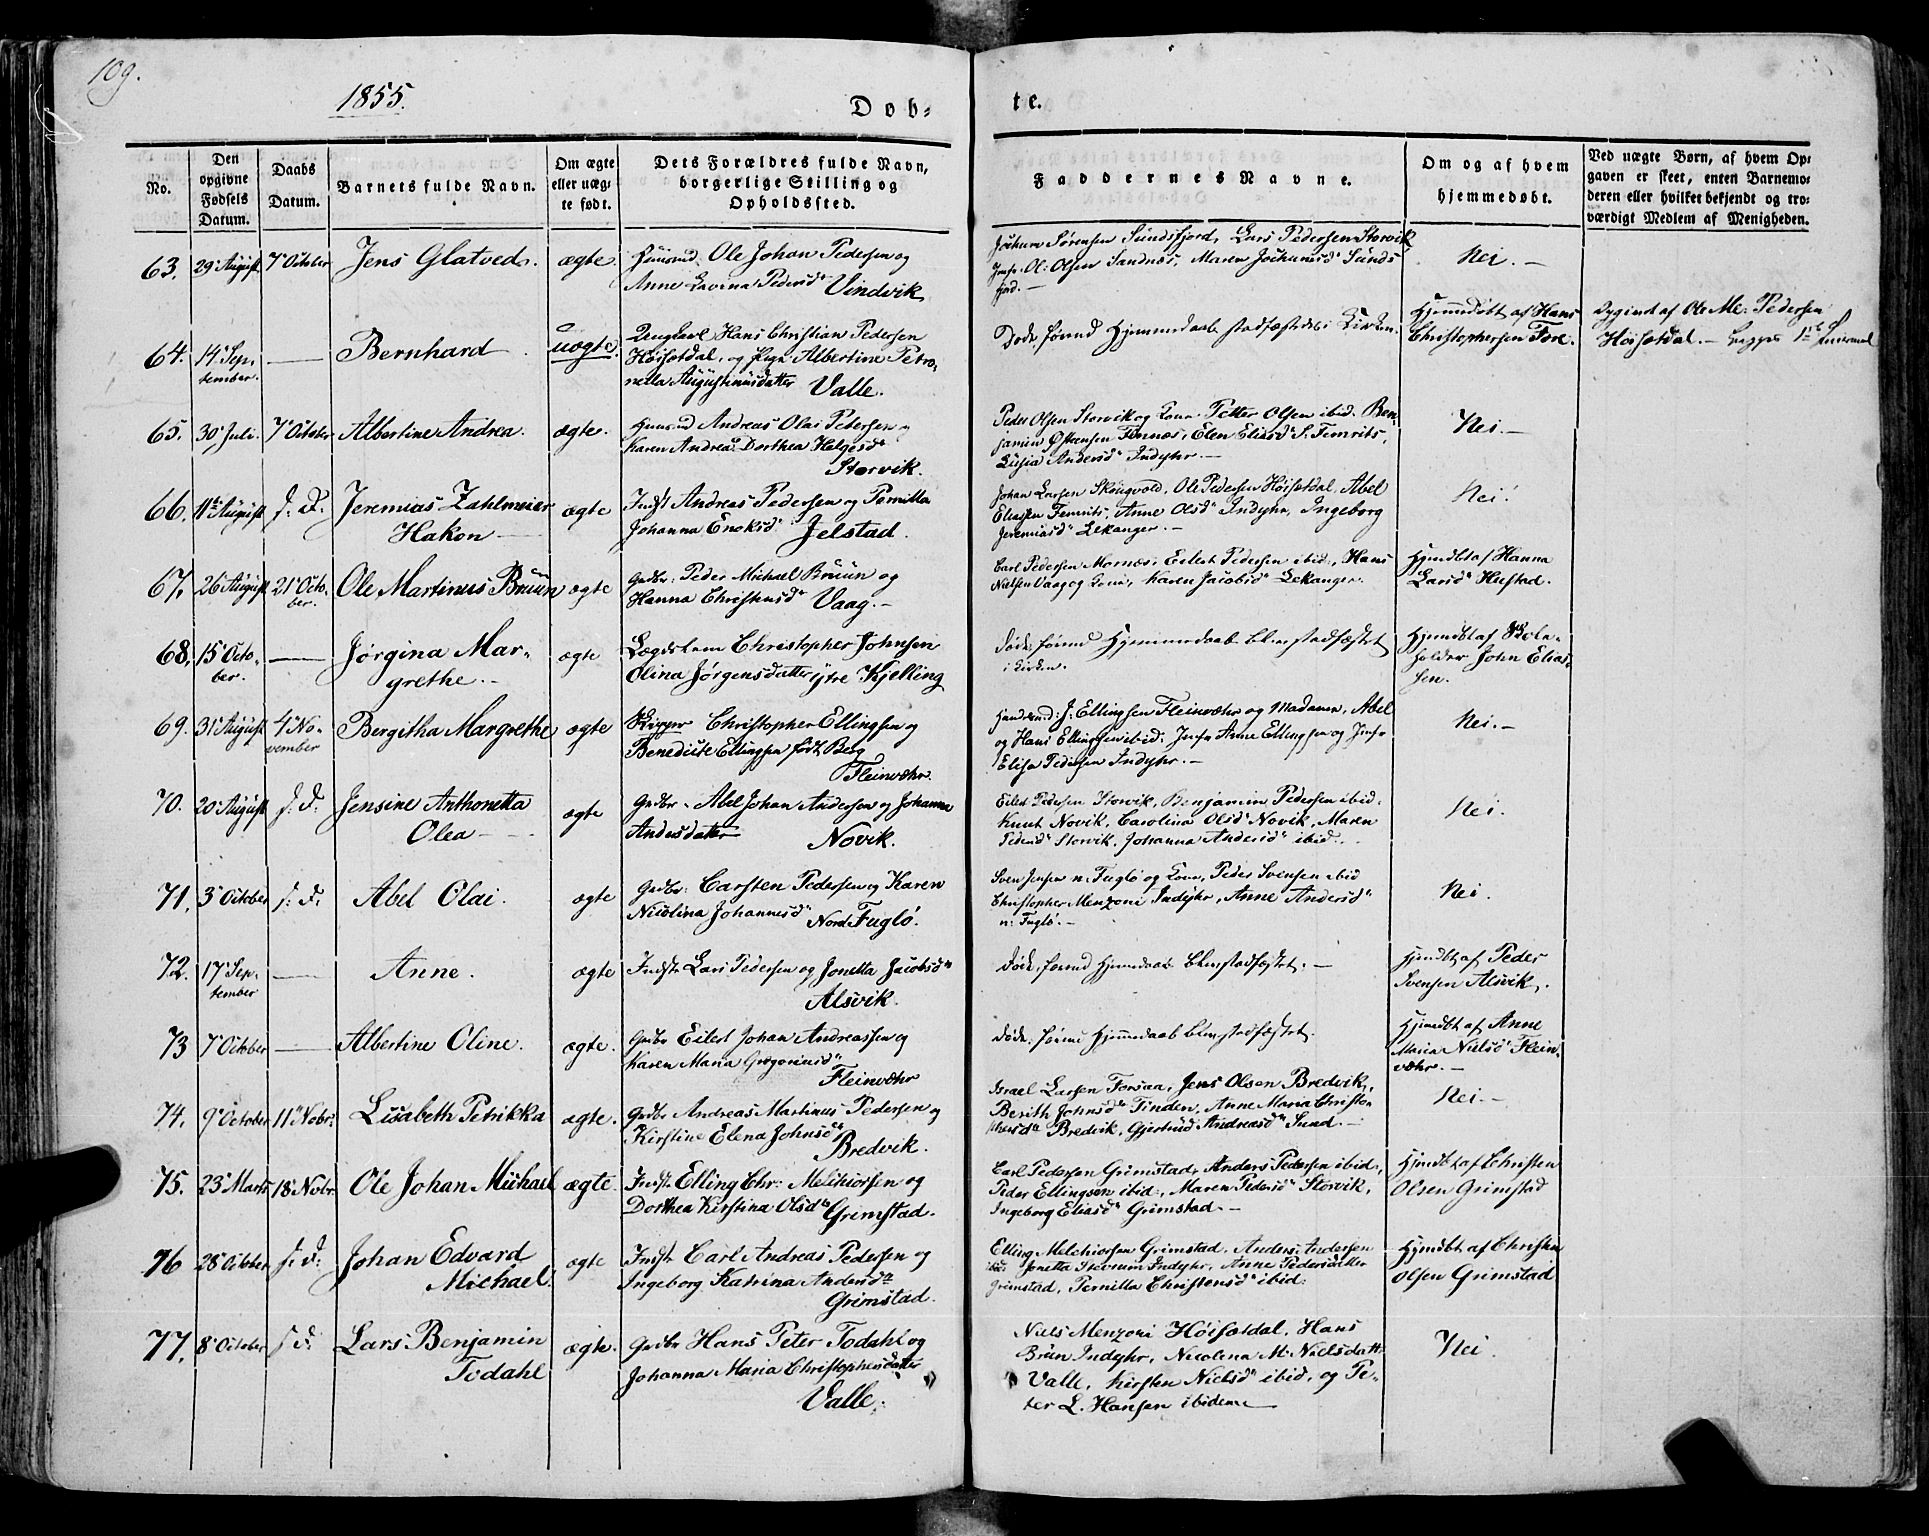 109.
1855.
Dob-
te.
No.
Den opgivne Fødsels Datum.
Daabs Datum.
Barnets fulde Navn.
Om ægte eller uæg- te født.
Dets Forældres fulde Navn, borgerlige Stilling og Opholdssted.
Faddernes Navne.
Om og af hvem hjemmedøbt.
Ved uægte Børn, af hvem Op- gaven er skeet, enten Barnemo- deren eller hvilket bekjendt og tro- værdigt Medlem af Menigheden.
63. 29 August 7 October Jens Glatved. ægte. Huusmd Ole Johan Pedersen og
Anne Lavina Pedersd Vindvik
Jochum Sørensen Sundsfjord, Lars Pedersen Storvik
Ole Olsen Sandnæs, Maren Jochumsd Sunds
fjord.
Nei.
64. 14 Sep- tember. — Bernhard uægte. Ungkarl Hans Christian Pedersen
Høisætdal, og Pige Albertine Petro-
nella Augustinusdatter Valle.
Døde, førend Hjemmedaab stadfæstedes i Kirken.
Hjemmedøbt af Hans
Christophersen Fore.
Opgivet af Ole Pedersen
Høisætdal.
65. 30 Juli. 7 October Albertine Andrea. ægte. Huusmd Andreas Olai Pedersen og
Karen Andrea Dorthea Helgesd
Storvik.
Peder Olsen Storvik og Kone. Petter Olsen ibid. Ben-
jamin Østensen Finnæs, Elen Eliasd S: Femris,
Lusia Andersd Indyhr.
Nei.
66. 11 August s: D: Jeremias Zahlmeier
Hakon
ægte Indst Andreas Pedersen og Pernilla
Johanna Enoksd Jelstad.
Johan Larsen Skaugvold, Ole Pedersen Høisætdal, Abel
Eliassen Femris, Anne Olsd Indyhr, Ingeborg
Jeremiasd Lekanger.
Nei.
67. 26 August 21 Octo- ber. Ole Martinus Bruun ægte Grdbr: Peder Michael Bruun og
Hanna Christensd Vaag.
Carl Pedersen Mornæs, Eilert Pedersen ibid., Hans
Nielsen Vaag og Kone, Karen Jacobsd Lekanger.
Hjemdbt af Hanna
Larsd Hustad.
68. 15 Octo- ber. — Jørgina Mar-
grethe.
ægte Lægdslem Christopher Johnsen
Olina Jørgensdatter ytre Kjelling
Døde, førend Hjemmedaab blev stadfæstet
i Kirken.
Hjemdbt af Skole-
holder John Elias-
sen.
69. 31 August 4 No- vember Bergitha Margrethe ægte Skipper Christopher Ellingsen og
Benedicte Ellingsen født Berg
Fleinvæhr.
Handelsmd: J: Ellingsen Fleinvæhr og Madame, Abel
og Hans Ellingsen ibid: Jmfr Anne Ellingsen og Jmfr
Elisa Pedersen Indyhr.
Nei.
70. 20 August s: D: Jensine Anthonetta
Olea
ægte Grdbr. Abel Johan Andersen og Johanna
Andersdatter Novik.
Eilert Pedersen Storvik, Benjamin Pedersen ibid.
Knut Novik, Carolina Olsd Novik, Maren
Pedersd Storvik, Johanna Andersd ibid:
Nei.
71. 3 October s: D: Abel Olai. ægte Grdbr: Carsten Pedersen og Karen
Nicolina Johannesd Nord Fuglø.
Sven Jensen n: Fuglø og Kone, Peder Svensen ibid
Christopher Menzoni Indyhr, Anne Andersd
n: Fuglø.
Nei.
72. 17 Sep- tember — Anne. ægte Indstr Lars Pedersen og Jonetta Jacobsd
Alsvik.
Døde, førend Hjemdaab blev stadfæstet.
Hjemdbt af Peder
Svensen Alsvik.
73 7 October — Albertine Oline. ægte. Grdbr Eilert Johan Andreassen og
Karen Maria Gregoriusd
Fleinvæhr
Døde, førend Hjemmedaab blev stadfæstet.
Hjemdbt af Anne
Maria Nielsd Flein-
væhr.
74. 9 October 11 Nobr: Lisabeth Petrikka ægte. Grdbr Andreas Martinus Pedersen og
Kirstine Elena Johnsd
Bredvik.
Israel Larsen Forsaa, Jens Olsen Bredvik,
Berith Johnsd Finden, Anne Maria Christo-
phersd Bredvik, Gjertrud Andreasd Sund.
Nei.
75. 23 Marts 18 Nobr. Ole Johan Michael ægte. Indst. Elling Chr: Melchiorsen og
Dorthea Kirstina Olsd Grimstad.
Carl Pedersen Grimstad, Anders Pedersen ibid.,
Peder Ellingsen ibid:, Maren Pedersd Storvik,
Ingeborg Eliasd Grimstad.
Hjemdbt af Christen
Olsen Grimstad
76 28 October s: D: Johan Edvard
Michael.
ægte Indstr Carl Andreas Pedersen og
Ingeborg Katrina Andersd
Grimstad.
Elling Melchiorsen Grimstad, Anders Andersen
ibid Jonetta Indyhr, Anne Pedersdatter
Grimstad, Pernilla Christensd ibid:
Hjemdbt af Christen
Olsen Grimstad
77. 8 October s: D: Lars Benjamin
Todahl
ægte. Grdbr Hans Peter Todahl og
Johanna Maria Christophersdatter
Valle.
Niels Menzoni Høisætdal, Hans
Brun Indyhr, Nicolina M. Nielsdatt
Valle, Kirsten Nielsd ibid, og Pe-
ter L. Hansen ibidem
Nei